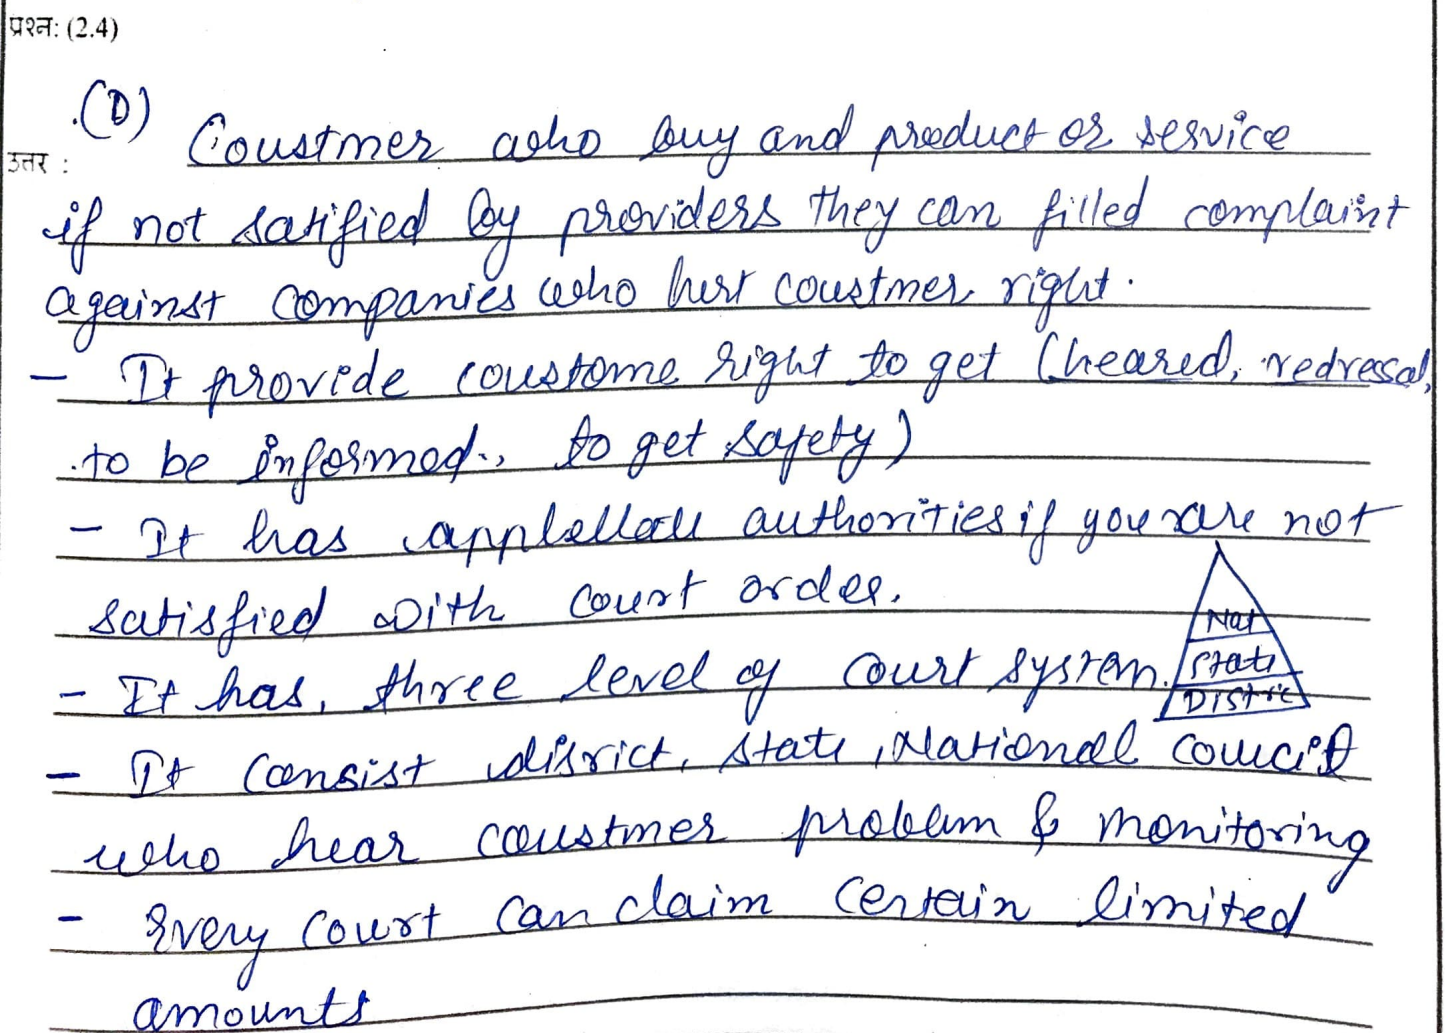 प्रश्न: (2.4)
(D)
उत्तर :
Coustmer who buy and product or service
if not satified by providers they can filled complaint
against companies who hurt coustmer right.
- It provide coustome right to get (heared, redressal,
to be informed., to get safety)
- It has authorities if you are not
satisfied with court order.
Nat
- It has, three level of court system. State
Distric
- It Consist disrict, state, National council
who hear coustmer problem & monitoring
- Every court can claim certain limited
amounts